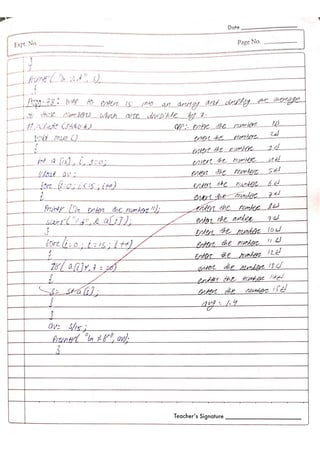 Date
Expt. No.
Page No.
}
}
printf("\n
}
Prog-38: WAP to enter 15 into an array and display the average
of those numbers which are divisible by 7.
# include <stdio.h>
O/P: enter the number 10
void main ()
enter the number 2
{
enter the number
int a [15], i, s=0;
enter the number
float av;
enter the number 5
for (i=0; i<15; i++)
enter the number 6
{
enter the number 7
printf ("\n enter the number");
enter the number 8
scanf ("%d", & a[i]);
enter the number 9
}
enter the number 10
for (i=0; i<15; i++)
enter the number 11
{
enter the number 12
if (a[i]%7==0)
enter the number 13
{
enter the number 14
s= s+a[i];
enter the number 15
}
avg = 1.4
}
av= s/15;
printf("\n %f", av);
}
Teacher's Signature